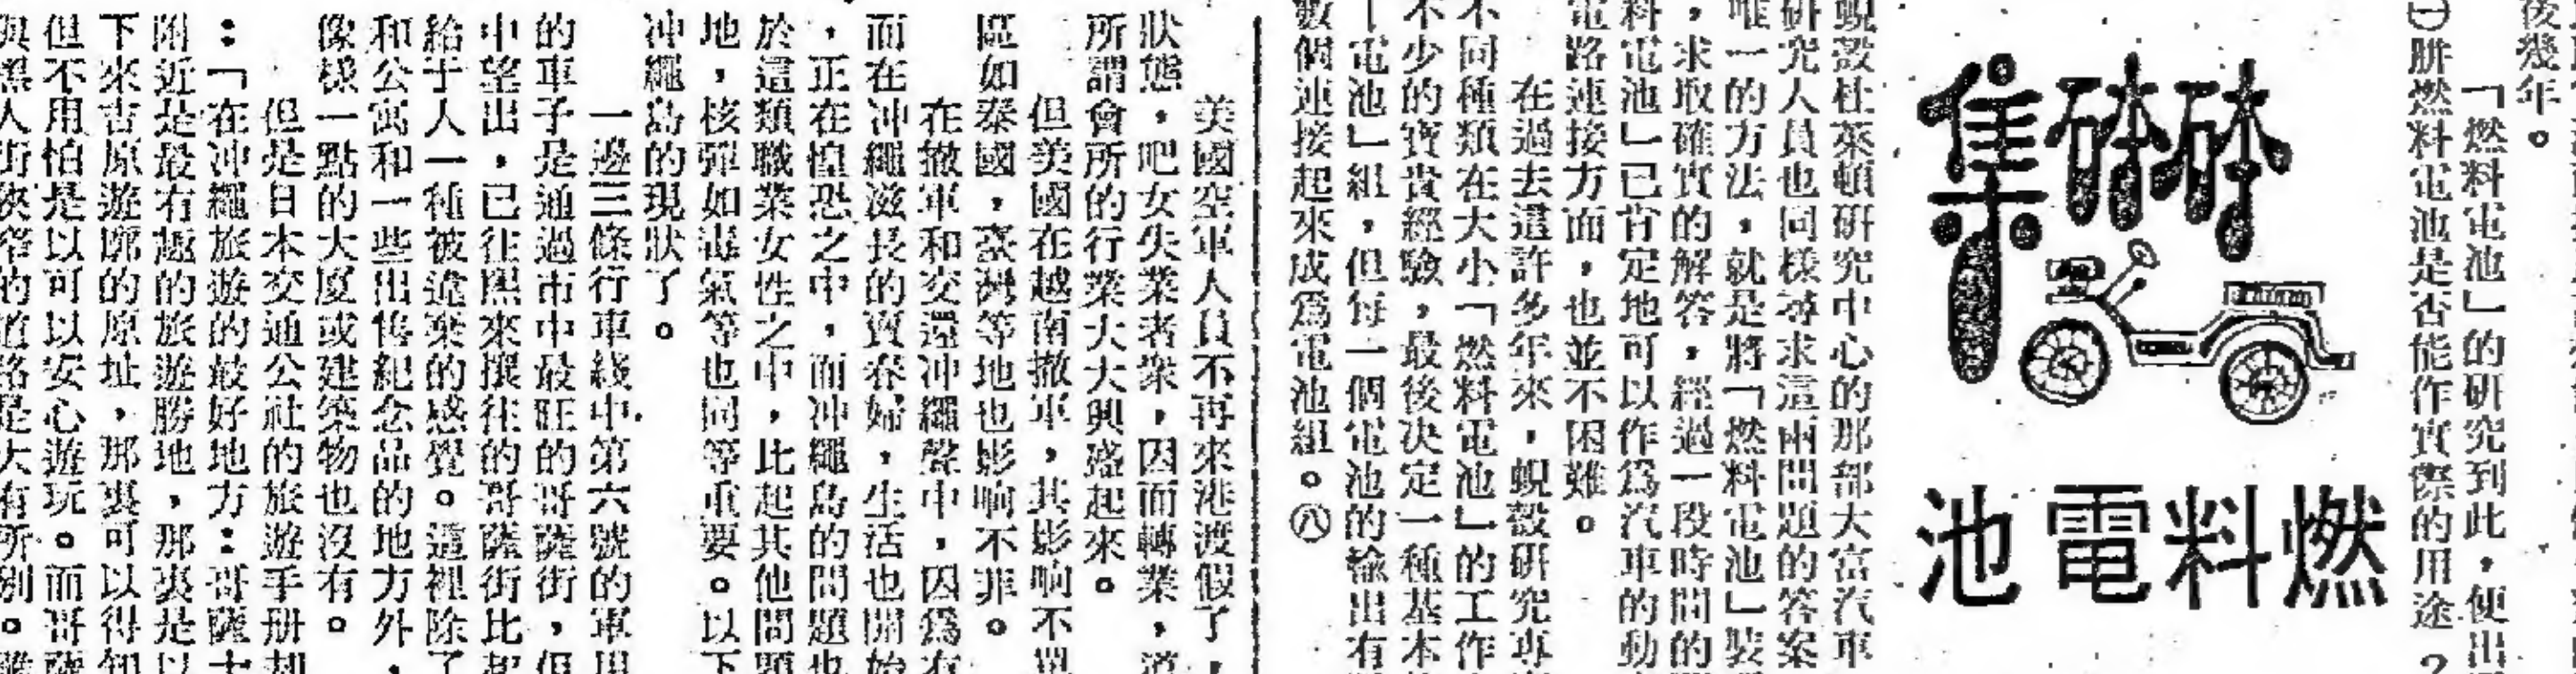 後幾年。
「燃料電池」的研究到此，便出
㊀胼燃料電池是否能作實際的用途？
砵砵集
燃料電池
蜆殼杜萊頓研究中心的那部大富汽車
研究人員也同樣尋求這兩問題的答案
唯一的方法，就是將「燃料電池」裝
，求取確實的解答，經過一段時間的
料電池」已肯定地可以作爲汽車的動
電路連接方面，也並不困難。
在過去這許多年來，蜆殼研究專
不同種類在大小「燃料電池」的工作
不少的寶貴經驗，最後决定一種基本
電池」組，但每一個電池的輸出有
數個連接起來成爲電池組。㊇
美國空軍人員不再來港渡假了，
狀態，吧女失業者衆，因而轉業，
所謂會所的行業大大興盛起來。
但美國在越南撤軍，其影响不單
區如泰國，臺灣等地也影响不菲。
在撤軍和交還冲繩聲中，因爲有
而在冲繩滋長的賣春婦，生活也開始
，正在惶恐之中，而冲繩島的問題也
於這類職業女性之中，比起其他問題
地，核彈如毒氣等也同等重要。以下
冲繩島的現狀了。
一邊三條行車綫中第六號的軍用
的車子是通過市中最旺的哥薩街，但
中望出，已往熙來攘往的哥薩街比起
給于人一種被遺棄的感覺。這裡除了
和公寓和一些出售紀念品的地方外，
像樣一點的大廈或建築物也沒有。
但是日本交通公社的旅遊手册却
：「在冲繩旅遊的最好地方：哥薩士
附近是最有趣的旅遊勝地，那裏是以
下來吉原遊廓的原址，那裏可以得知
但不用怕是以可以安心遊玩。而哥薩
與黑人街狹窄的道路是大有所別。雖